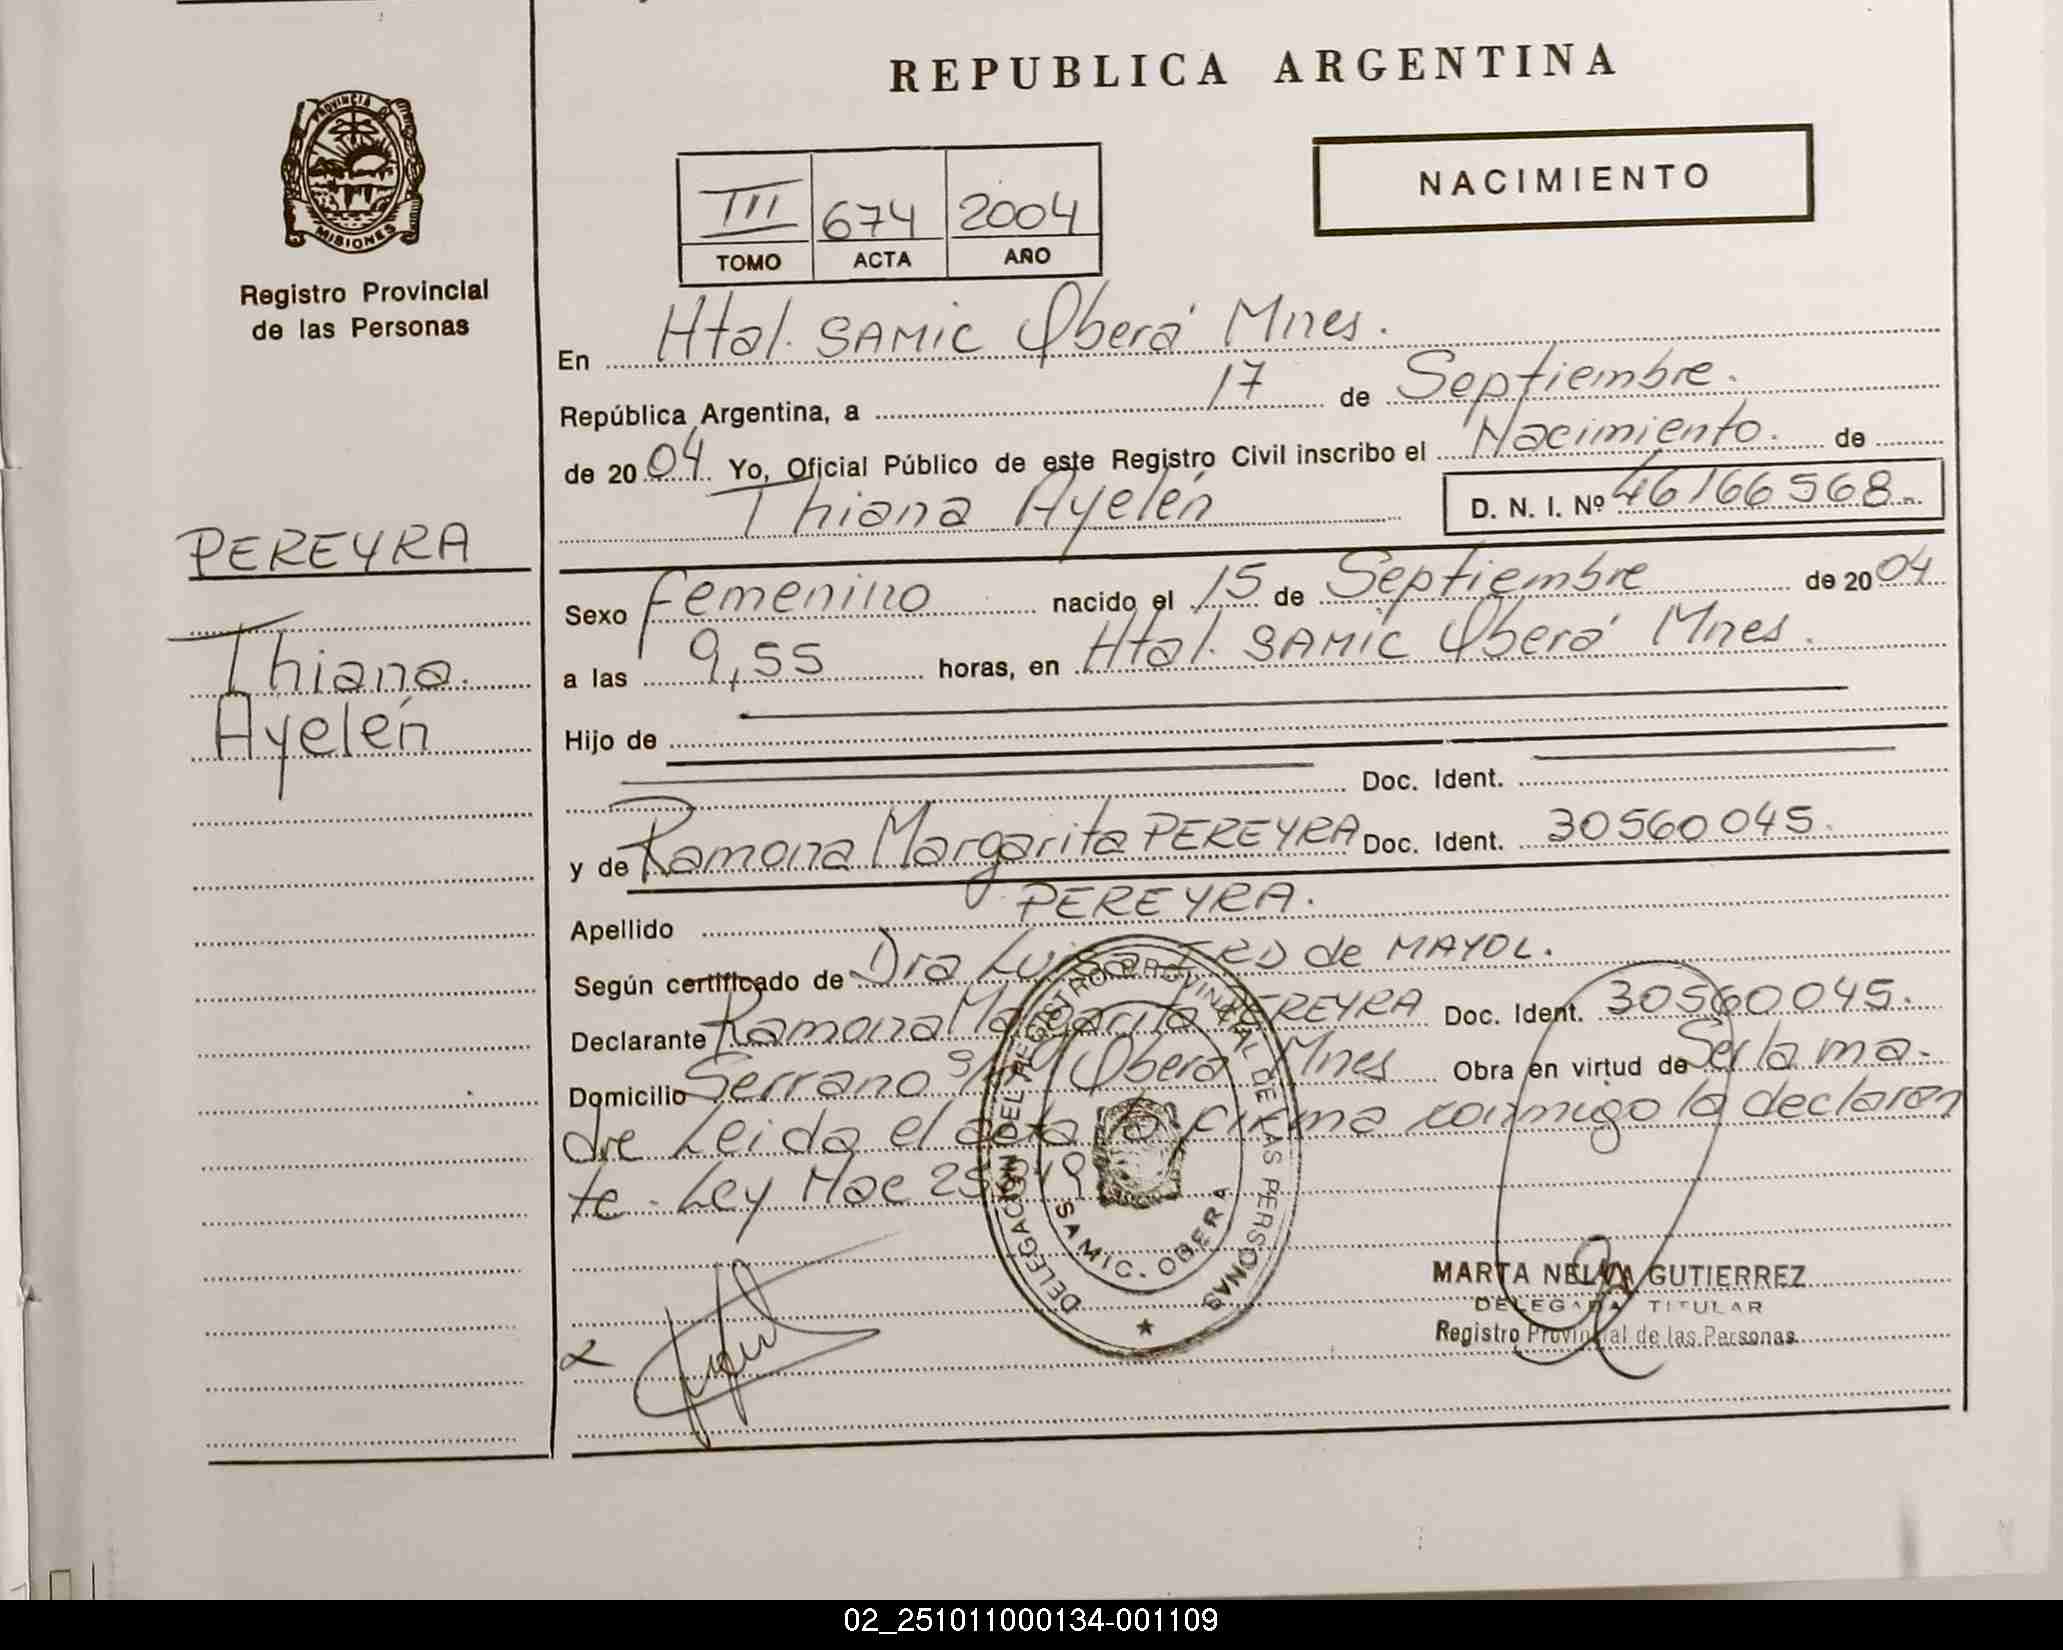 REPUBLICA ARGENTINA
PROVINCIA
MISIONES
Registro Provincial
de las Personas
NACIMIENTO
III 674 2004
TOMO ACTA AÑO
En Htal. SAMIC Oberá Mnes.
República Argentina, a 17 de Septiembre.
de 2004 Yo, Oficial Público de este Registro Civil inscribo el Nacimiento. de
Thiana Ayelén D. N. I. Nº 46166568
PEREYRA
Thiana.
Ayelén
Sexo Femenino nacido el 15 de Septiembre de 2004
a las 9,55 horas, en Htal. SAMIC Oberá Mnes.
Hijo de
Doc. Ident.
y de Ramona Margarita PEREYRA Doc. Ident. 30560045.
Apellido PEREYRA.
Según certificado de Dra Luisa de MAYOL.
Declarante Ramona Margarita PEREYRA Doc. Ident. 30560045.
Domicilio Serrano s/nº Oberá Mnes Obra en virtud de Ser la ma-
dre Leida el acta la firma conmigo la declaran
te - Ley Mac 25
DELEGACION DEL REGISTRO PROVINCIAL DE LAS PERSONAS
SAMIC. OBERA
MARTA NELVA GUTIERREZ
DELEGADA TITULAR
Registro Provincial de las Personas
02_251011000134-001109